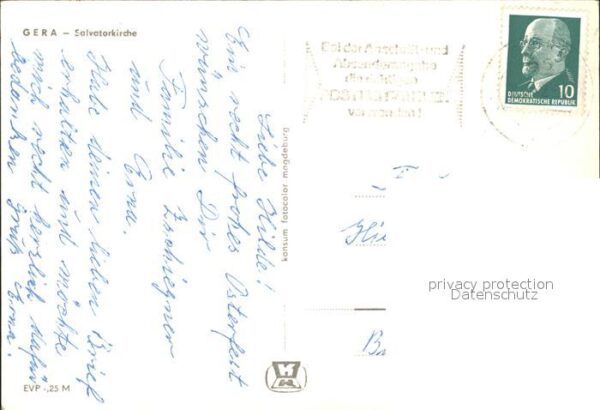 GERA – Salvatorkirche
Liebe Hilde!
Ein recht frohes Osterfest
wünschen Dir
Familie
und Erna.
Habe deinen lieben Brief
erhalten und möchte
mich recht herzlich dafür
bedanken Gruß Erna.
EVP -,25 M
konsum fotocolor magdeburg
Bei der Anschrift- und
Absenderangabe
die richtigen
POSTLEITZAHLEN
verwenden!
10
DEUTSCHE
DEMOKRATISCHE REPUBLIK
privacy protection
Datenschutz